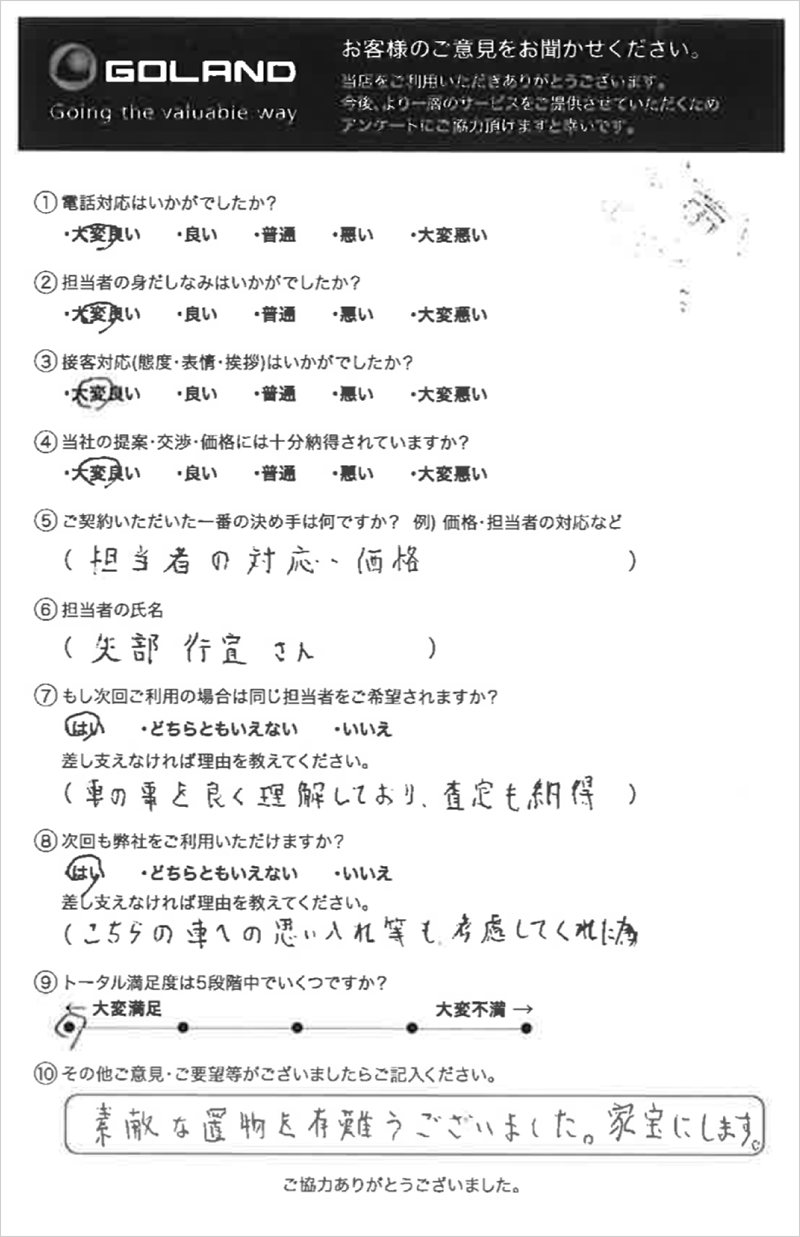 GOLAND
Going the valuable way
お客様のご意見をお聞かせください。
当店をご利用いただきありがとうございます。
今後、より一層のサービスをご提供させていただくため
アンケートにご協力頂けますと幸いです。
①電話対応はいかがでしたか?
・大変良い ・良い ・普通 ・悪い ・大変悪い
②担当者の身だしなみはいかがでしたか?
・大変良い ・良い ・普通 ・悪い ・大変悪い
③接客対応(態度・表情・挨拶)はいかがでしたか?
・大変良い ・良い ・普通 ・悪い ・大変悪い
④当社の提案・交渉・価格には十分納得されていますか?
・大変良い ・良い ・普通 ・悪い ・大変悪い
⑤ご契約いただいた一番の決め手は何ですか? 例) 価格・担当者の対応など
(担当者の対応・価格)
⑥担当者の氏名
(矢部 行宣 さん)
⑦もし次回ご利用の場合は同じ担当者をご希望されますか?
はい ・どちらともいえない ・いいえ
差し支えなければ理由を教えてください。
(車の事を良く理解しており、査定も納得)
⑧次回も弊社をご利用いただけますか?
はい ・どちらともいえない ・いいえ
差し支えなければ理由を教えてください。
(こちらの車への思い入れ等も考慮してくれた為
⑨トータル満足度は5段階中でいくつですか?
← 大変満足 大変不満 →
⑩その他ご意見・ご要望等がございましたらご記入ください。
素敵な置物を有難うございました。家宝にします。
ご協力ありがとうございました。